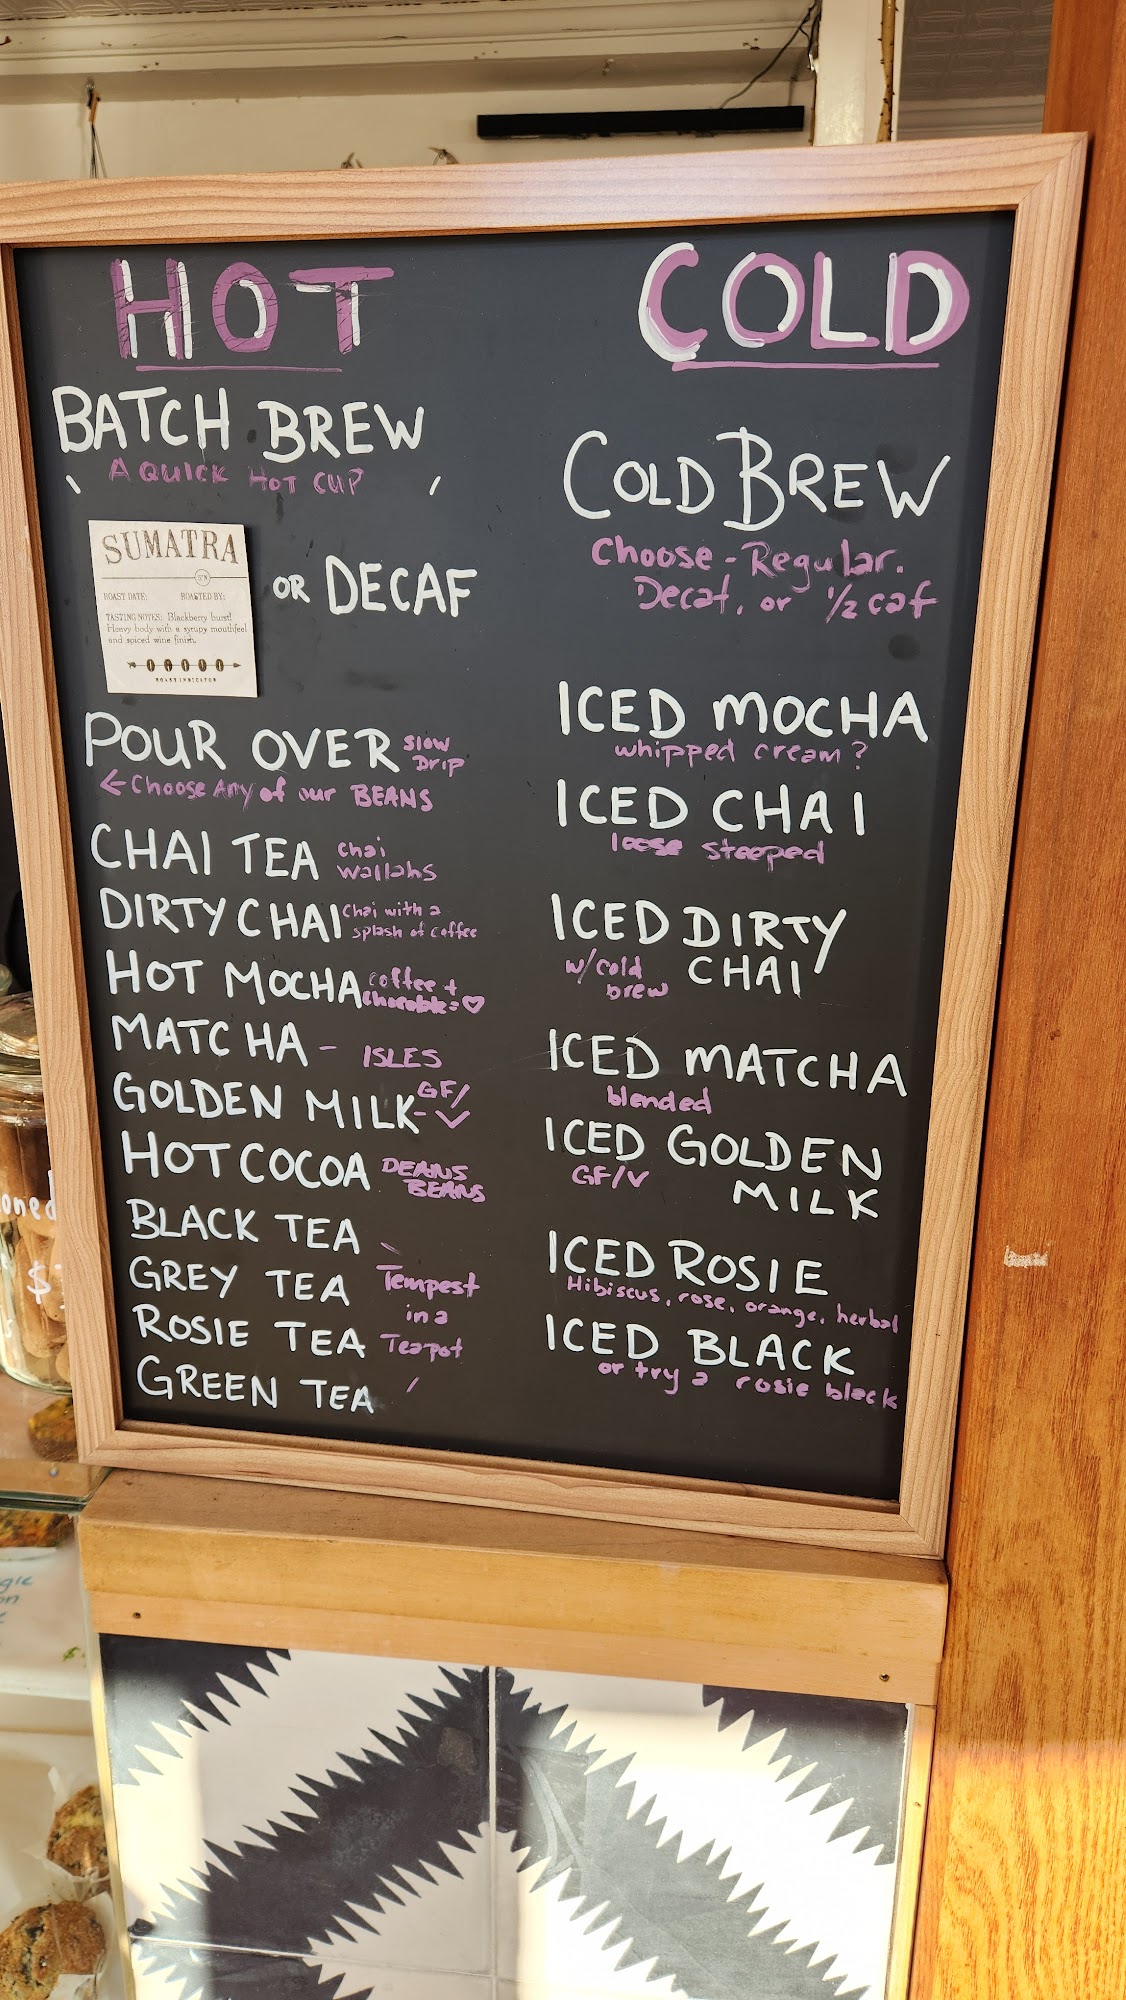 HOT
BATCH BREW
A QUICK HOT CUP
SUMATRA
ROAST DATE: ROASTED BY:
TASTING NOTES: Blackberry burst!
Heavy body with a syrupy mouthfeel
and spiced wine finish.
ROAST INDICATOR
OR DECAF
POUR OVER slow
Drip
← Choose Any of our BEANS
CHAI TEA chai
wallahs
DIRTY CHAI chai with a
splash of coffee
HOT MOCHA coffee +
chocolate = ♡
MATCHA - ISLES
GOLDEN MILK - GF/
V
HOT COCOA DEANS
BEANS
BLACK TEA
GREY TEA Tempest
in a
ROSIE TEA Teapot
GREEN TEA
COLD
COLD BREW
Choose - Regular.
Decaf, or 1/2 caf
ICED MOCHA
whipped cream?
ICED CHAI
loose steeped
ICED DIRTY
w/cold CHAI
brew
ICED MATCHA
blended
ICED GOLDEN
GF/V MILK
ICED ROSIE
Hibiscus, rose, orange, herbal
ICED BLACK
or try a rosie black
oned
$